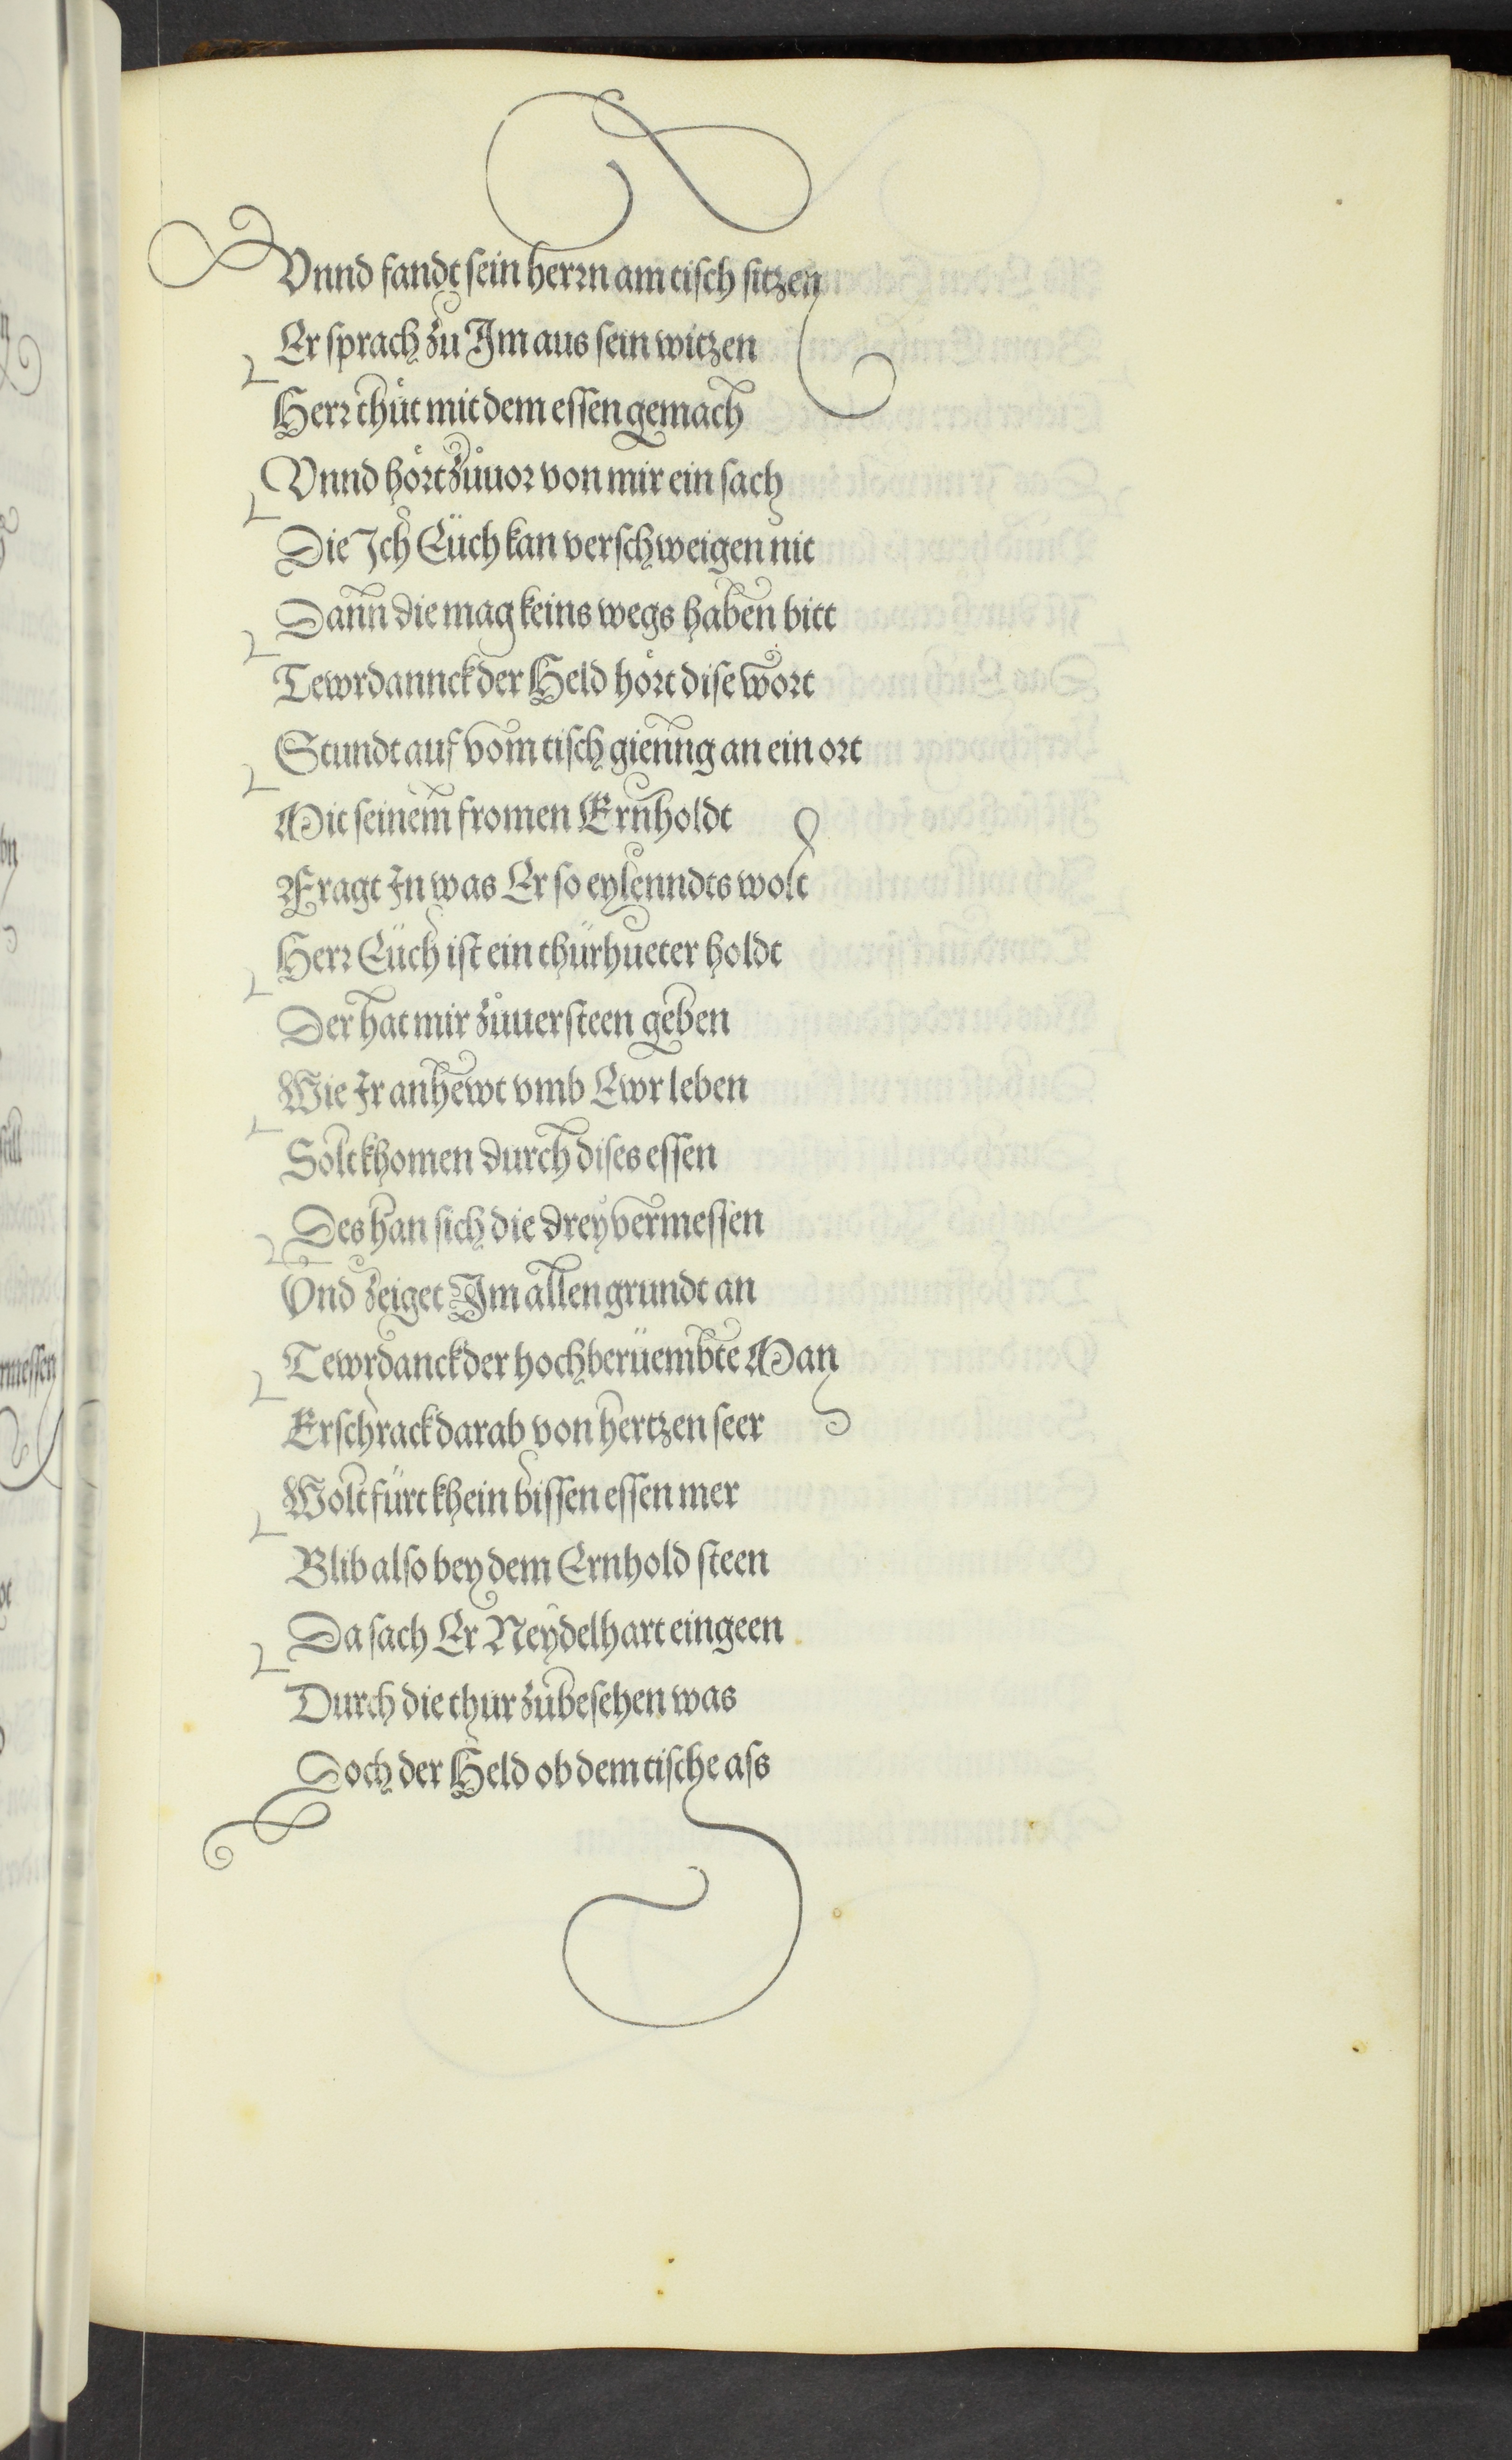 Vnnd fandt sein herrn am tisch sitzen
Er sprach zu Im aus sein witzen
Herr thůt mit dem essen gemach
Vnnd hört zůuor von mir ein sach
Die Ich Eüch kan verschweigen nit
Dann die mag keins wegs haben bitt
Tewrdannck der Held hört dise wort
Stundt auf vom tisch gienng an ein ort
Mit seinem fromen Ernholdt
Fragt In was Er so eylenndts wolt
Herr Eüch ist ein thürhueter holdt
Der hat mir zůuersteen geben
Wie Ir anhewt vmb Ewr leben
Solt khomen durch dises essen
Des han sich die drey vermessen
Vnd zeiget Im allen grundt an
Tewrdanck der hochberüembte Man
Erschrack darab von hertzen seer
Wolt fürt khein bissen essen mer
Blib also bey dem Ernhold steen
Da sach Er Neydelhart eingeen
Durch die thur zůbesehen was
Doch der Held ob dem tische ass